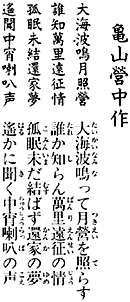 亀山營中作
大海波鳴月照營
誰知萬里遠征情
孤眠未結還家夢
遙聞中宵喇叭声
大海波鳴って月營を照らす
誰か知らん萬里遠征の情
孤眠未だ結ばず還家の夢
遙かに聞く中宵喇叭の声